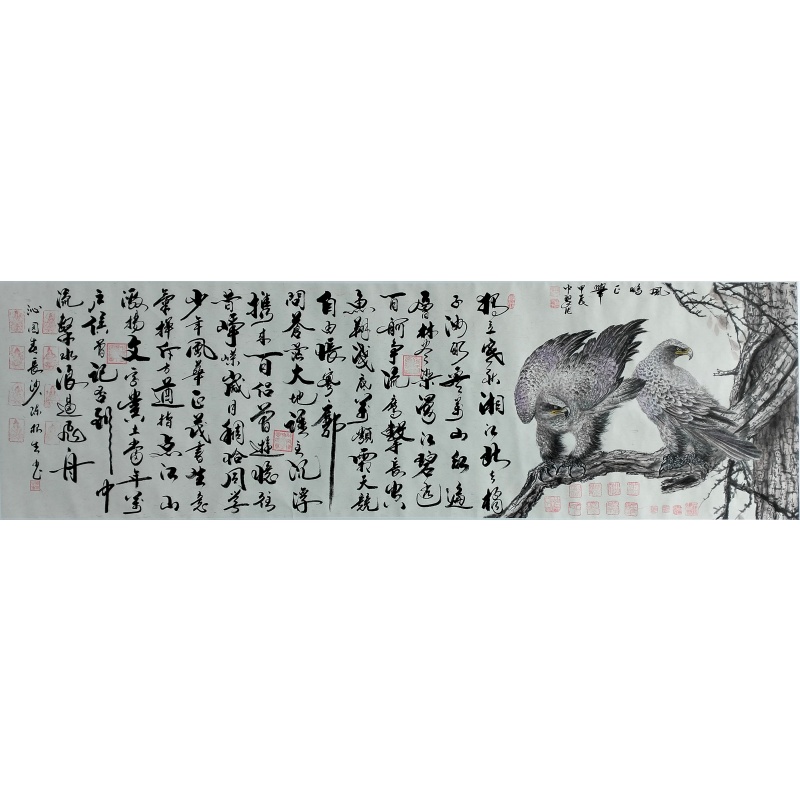 獨立寒秋湘江北去橘
子洲頭看萬山紅遍
層林盡染漫江碧透
百舸爭流鷹擊長空
魚翔淺底萬類霜天競
自由悵寥廓
問蒼茫大地誰主沉浮
携來百侣曾遊憶往
昔崢嶸歲月稠恰同學
少年風華正茂書生意
氣揮斥方遒指点江山
激揚文字糞土當年萬
户侯曾記否到中
流擊水浪遏飛舟
沁園春長沙